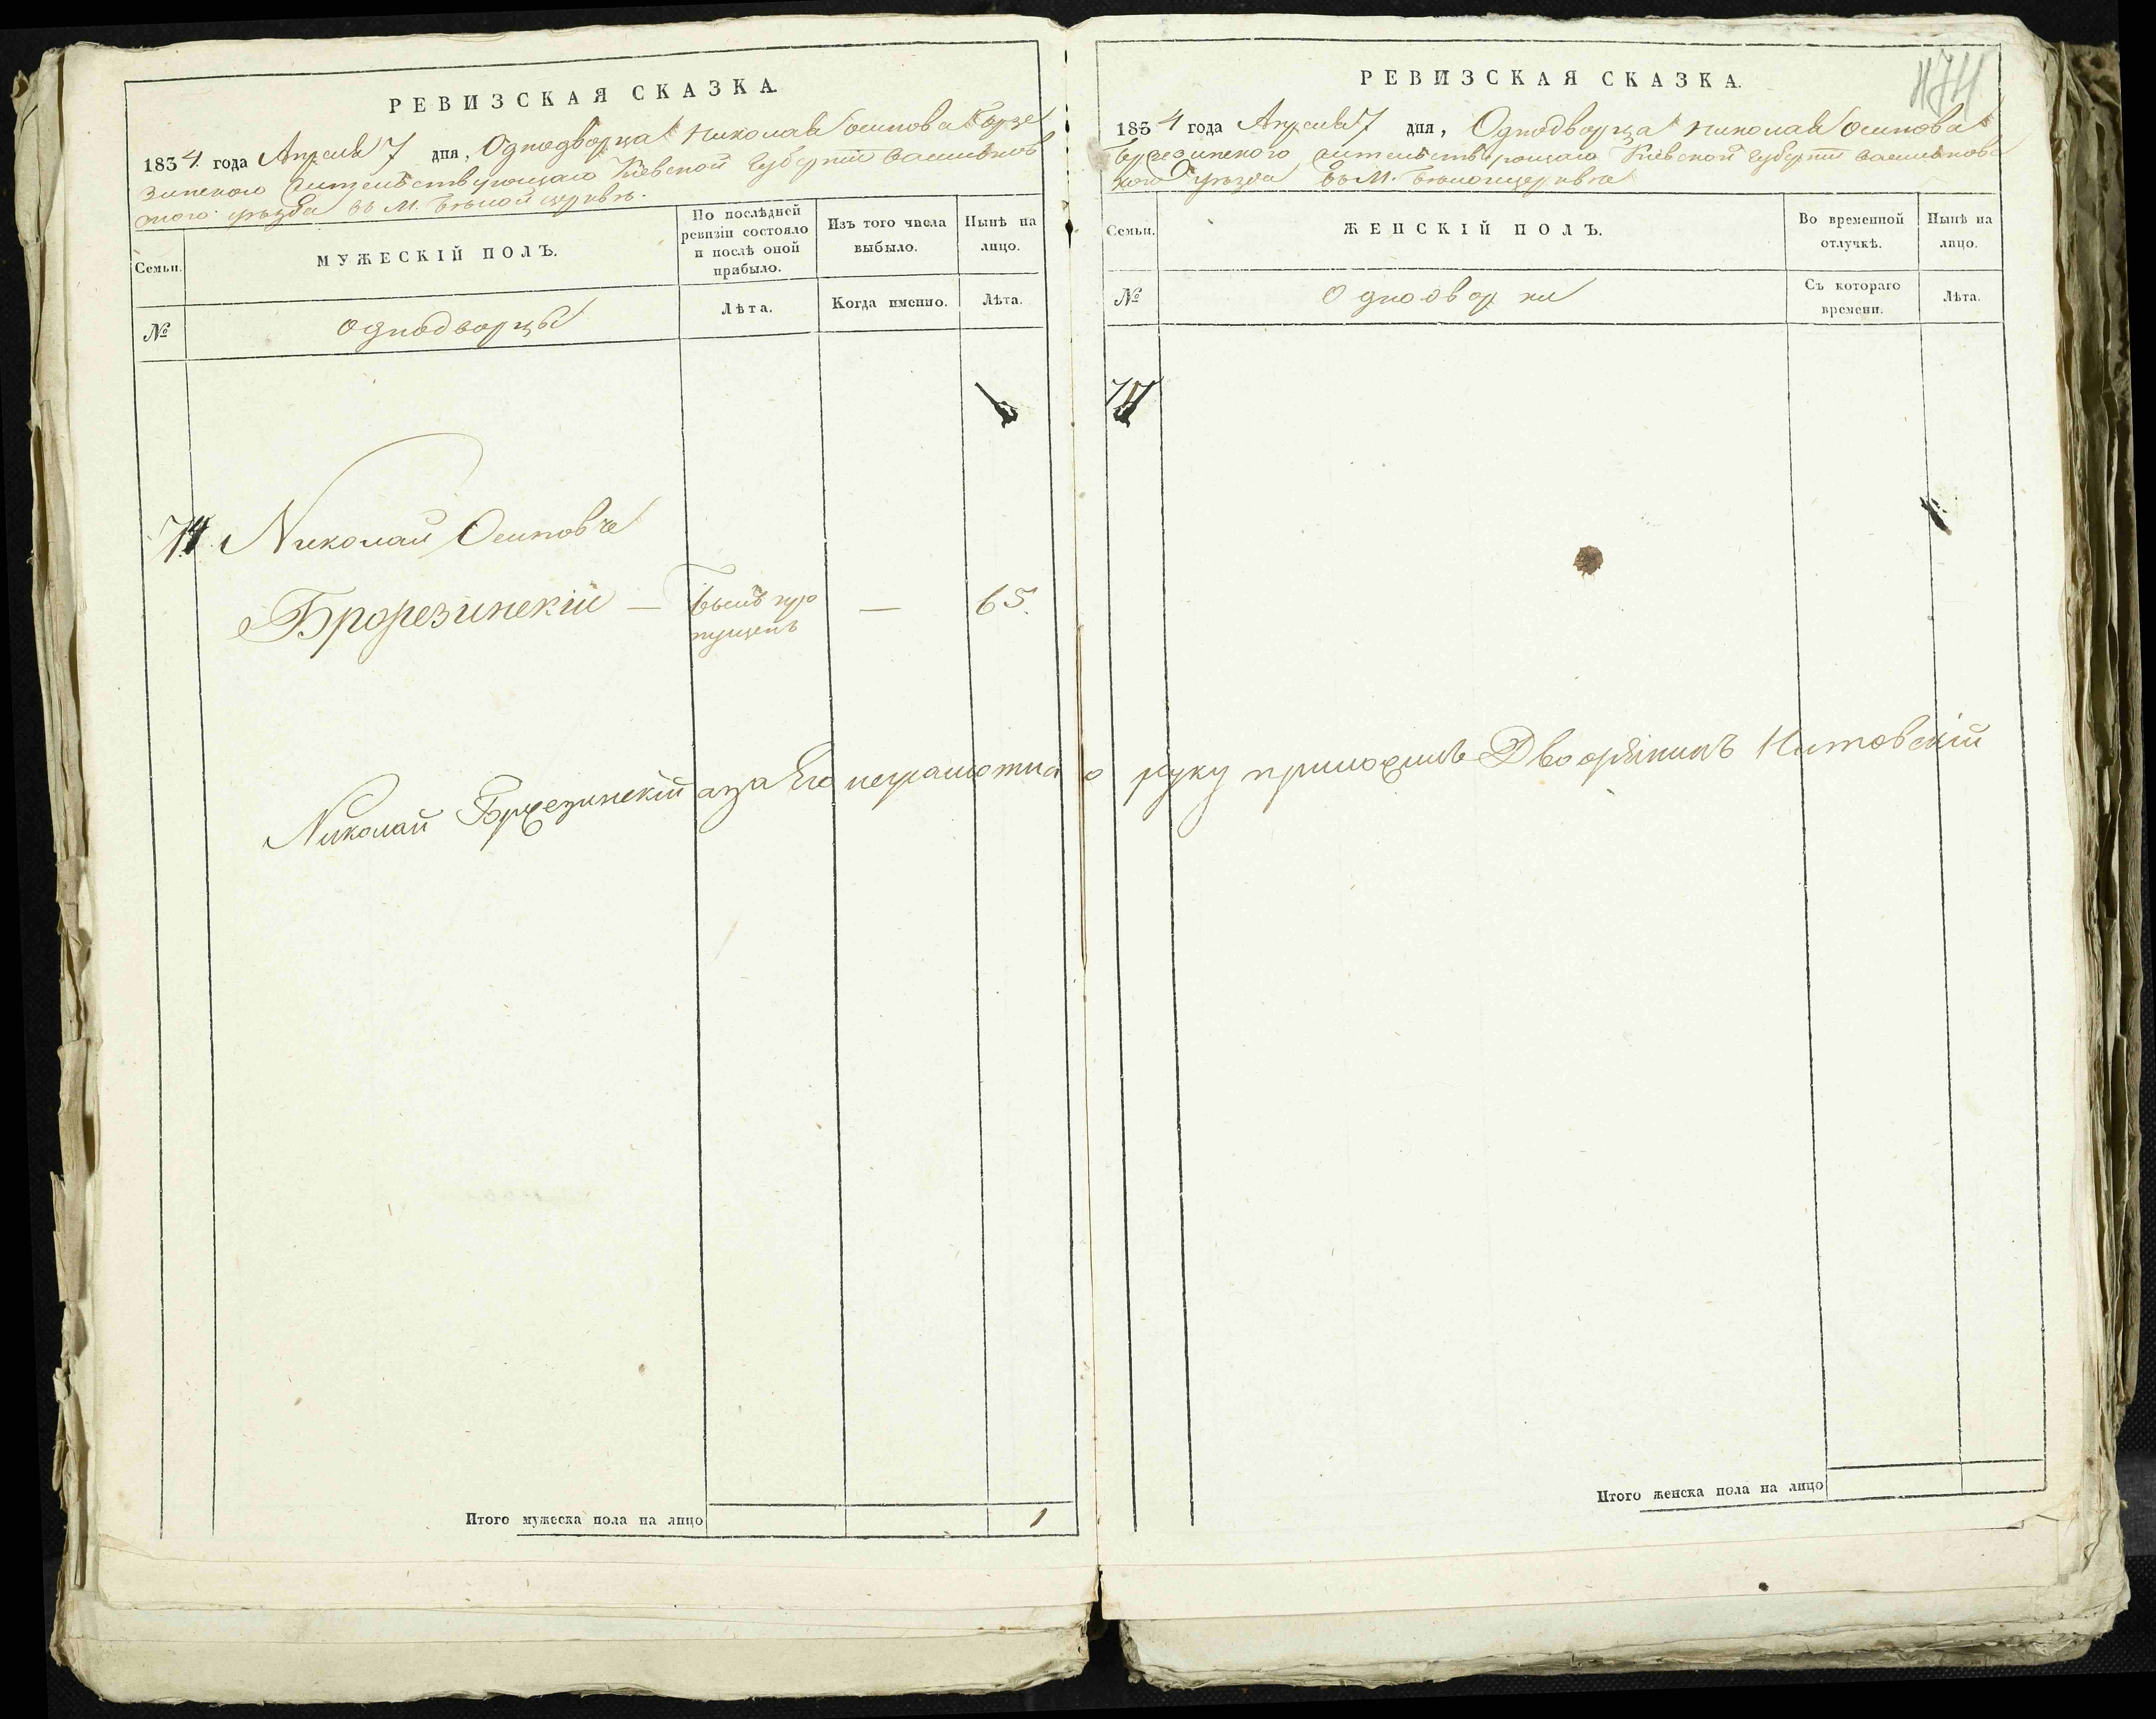 РЕВИЗСКАЯ СКАЗКА.
1834. года Апреля 7 дня, Однодворца Николая Осипова Бржезинского жительствующаго Кіевской Губерніи Васильковского уѣзда въ М. Бѣлой церквѣ.
Семьи.
МУЖЕСКІЙ ПОЛЪ.
По послѣдней ревизіи состояло и послѣ оной прибыло.
Изъ того числа выбыло.
Нынѣ на лицо.
№
однодворцы
Лѣта.
Когда именно.
Лѣта.
74 Николай Осиповъ
Бржезинскій — былъ про — 65.
пущенъ
Николай Бржезинскій а за Его неграмотна
Итого мужеска пола на лицо 1
174
РЕВИЗСКАЯ СКАЗКА.
1834 года Апреля 7 дня, Однодворца Николая Осипова
Бржезинского жительствующаго Кіевской Губерніи Васильковс
кого уѣзда въ М. Бѣлоицерквѣ
Семьи.
ЖЕНСКІЙ ПОЛЪ.
Во временной отлучкѣ.
Нынѣ на лицо.
№
Однодворки
Съ котораго времени.
Лѣта.
74
о руку приложилъ Дворянинъ
Итого женска пола на лицо